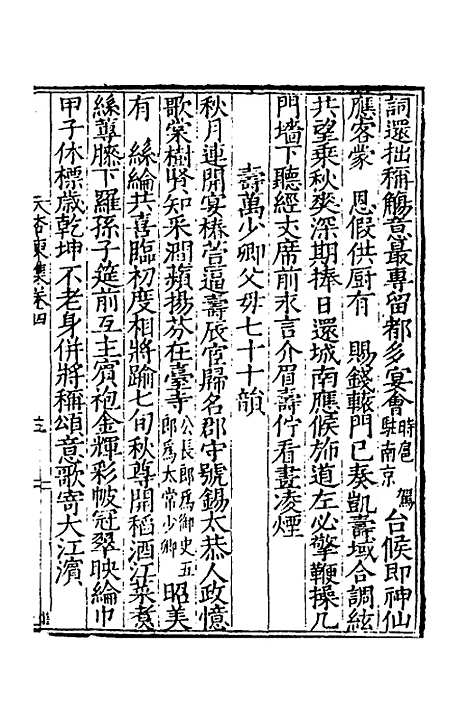 詞還拙稱觴意最專留都多宴會時扈駕駐南京台候即神仙
應容蒙　恩假供厨有　賜錢轅門已奏凱壽域合調絃
共望乘秋爽深期捧日還城南應候斾道左必擎鞭操几
門墻下聽經丈席前永言介眉壽佇看畫凌煙
壽萬少卿父母七十十韻
秋月連開宴椿萱逼壽辰官歸名郡守號錫太恭人政憶
歌棠樹賢知采澗蘋揚芬在臺寺公長郎爲御史五郎爲太常少卿昭美
有　絲綸共喜臨初度相將踰七旬秋尊開稻酒江菜煑
絲蓴膝下羅孫子筵前互主賓袍金輝彩帔冠翠映綸巾
甲子休標歲乾坤不老身併將稱頌意歌寄大江濱
東集卷四